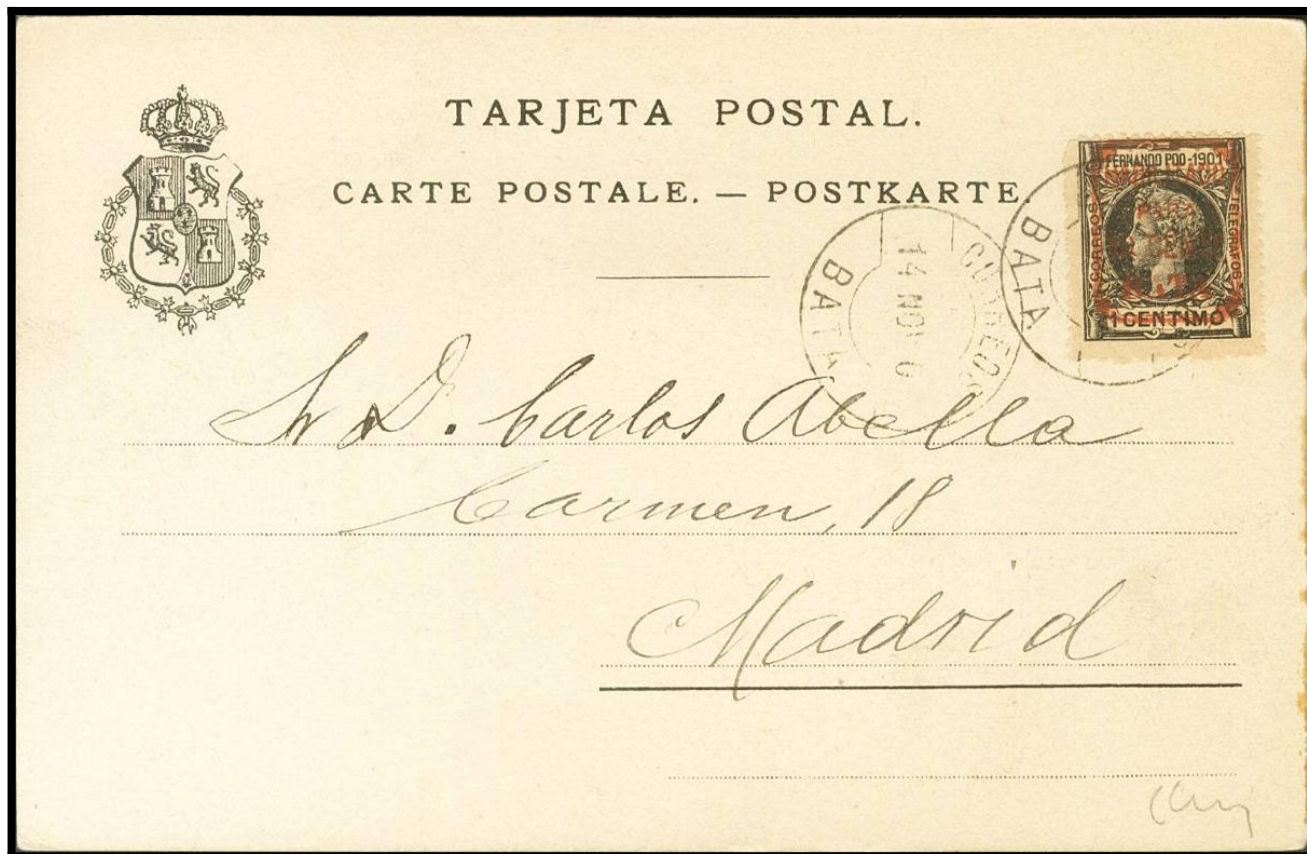 TARJETA POSTAL.
CARTE POSTALE. — POSTKARTE.
FERNANDO POO-1901
CORREOS
TELEGRAFOS
1 CENTIMO
BATA
CORREOS
14 NOV
BATA
Sr. D. Carlos Abella
Carmen, 18
Madrid